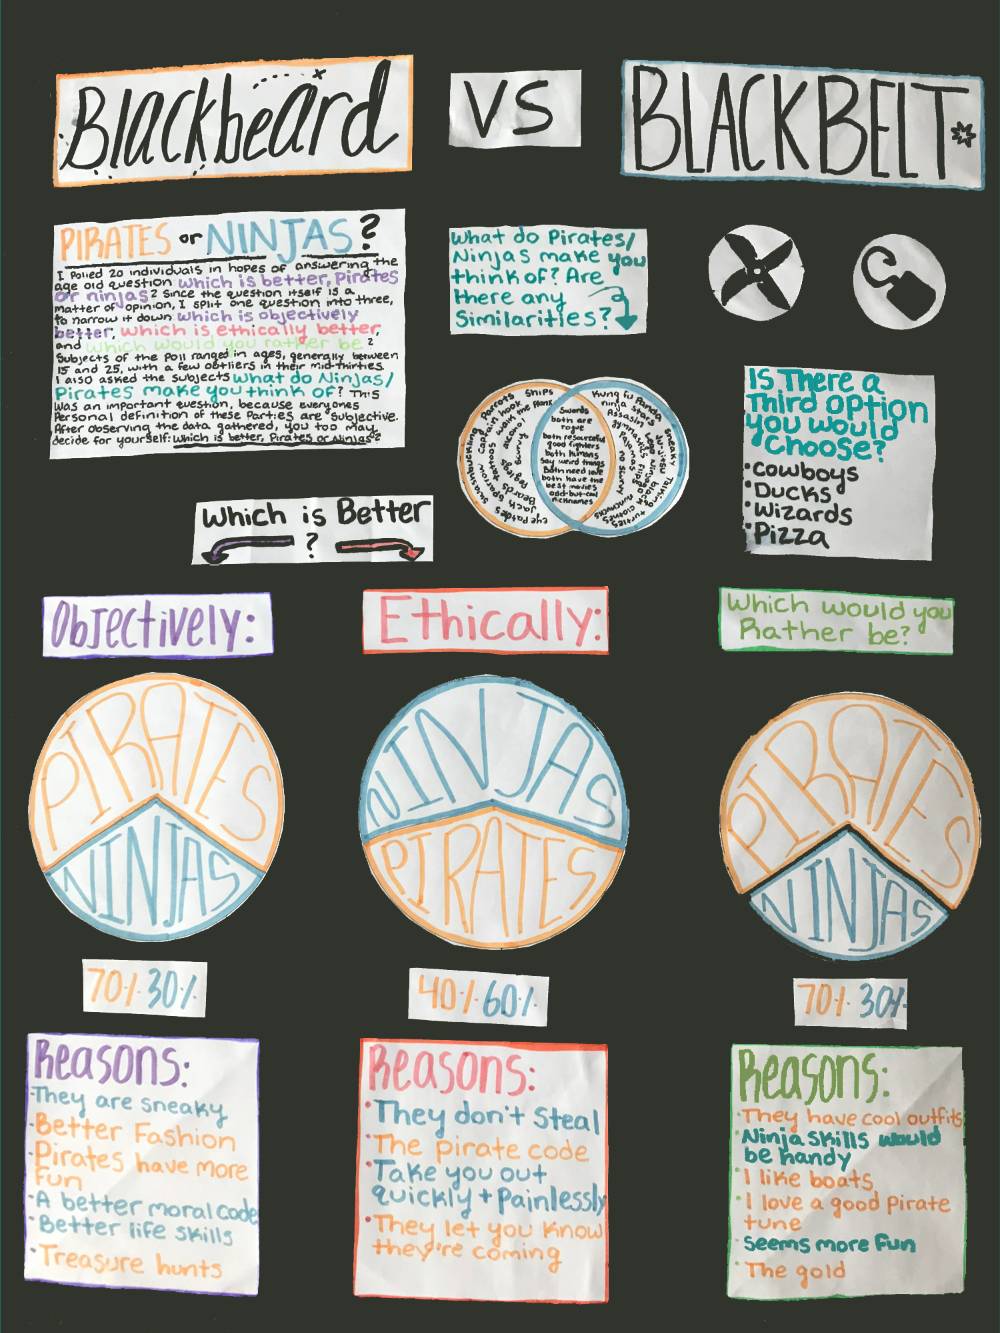 Blackbeard
VS
BLACKBELT
PIRATES or NINJAS?
I Polled 20 individuals in hopes of answering the
age old question which is better, Pirates
or ninjas? Since the question itself is a
matter of opinion, I split one question into three,
to narrow it down which is objectively
better, which is ethically better,
and which would you rather be?
Subjects of the Poll ranged in ages, generally between
15 and 25, with a few outliers in their mid-thirties.
I also asked the subjects what do Ninjas/
Pirates make you think of? This
was an important question, because everyones
Personal definition of these Parties are subjective.
After observing the data gathered, you too may
decide for yourself: which is better, Pirates or Ninjas?
What do Pirates/
Ninjas make you
think of? Are
there any
Similarities?
Parrots
Ships
Captain hook
walk the plank
Swashbuckling
tattoos
alcohol
Scurvy
Peglegs
Jack Sparrow
Beards
eye patches
Swords
both are
rogue
both resourceful
good fighters
both humans
Say weird things
Both need love
both have the
best movies
odd but cool
nicknames
Kung fu Panda
ninja stars
Assassin
Sneaky
gymnastics
Lego ninjago
Ninjitsu
Pajamas
flips
black clothes
turtles
nunchucks
Is There a
Third option
you would
Choose?
•Cowboys
•Ducks
•Wizards
•Pizza
Which is Better
?
Objectively:
Ethically:
Which would you
Rather be?
PIRATES
NINJAS
NINJAS
PIRATES
PIRATES
NINJAS
70% 30%
40% 60%
70% 30%
Reasons:
•They are sneaky
•Better Fashion
•Pirates have more
Fun
•A better moral code
•Better life skills
•Treasure hunts
Reasons:
•They don't Steal
•The pirate code
•Take you out
quickly + Painlessly
•They let you know
they're coming
Reasons:
•They have cool outfits
•Ninja skills would
be handy
•I like boats
•I love a good Pirate
tune
•Seems more Fun
•The gold